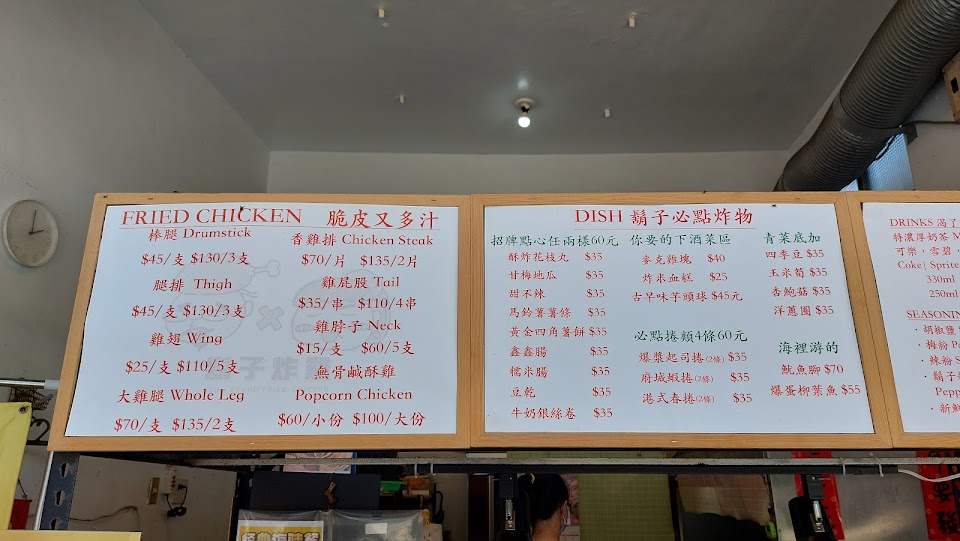 FRIED CHICKEN 脆皮又多汁
棒腿 Drumstick
$45/支 $130/3支
腿排 Thigh
$45/支 $130/3支
雞翅 Wing
$25/支 $110/5支
大雞腿 Whole Leg
$70/支 $135/2支
香雞排 Chicken Steak
$70/片 $135/2片
雞屁股 Tail
$35/串 $110/4串
雞脖子 Neck
$15/支 $60/5支
無骨鹹酥雞
Popcorn Chicken
$60/小份 $100/大份
DISH 鬍子必點炸物
招牌點心任兩樣60元
酥炸花枝丸 $35
甘梅地瓜 $35
甜不辣 $35
馬鈴薯薯條 $35
黃金四角薯餅 $35
鑫鑫腸 $35
糯米腸 $35
豆乾 $35
牛奶銀絲卷 $35
你要的下酒菜區
麥克雞塊 $40
炸米血糕 $25
古早味芋頭球 $45元
必點捲類4條60元
爆漿起司捲(2條) $35
府城蝦捲(2條) $35
港式春捲(2條) $35
青菜底加
四季豆 $35
玉米筍 $35
杏鮑菇 $35
洋蔥圈 $35
海裡游的
魷魚腳 $70
爆蛋柳葉魚 $55
DRINKS 渴了
特濃厚奶茶 M
可樂,雪碧,
Coke| Sprite
330ml
250ml
SEASONIN
·胡椒鹽
·梅粉 P
·辣粉 S
·鬍子
Pepp
·新鮮